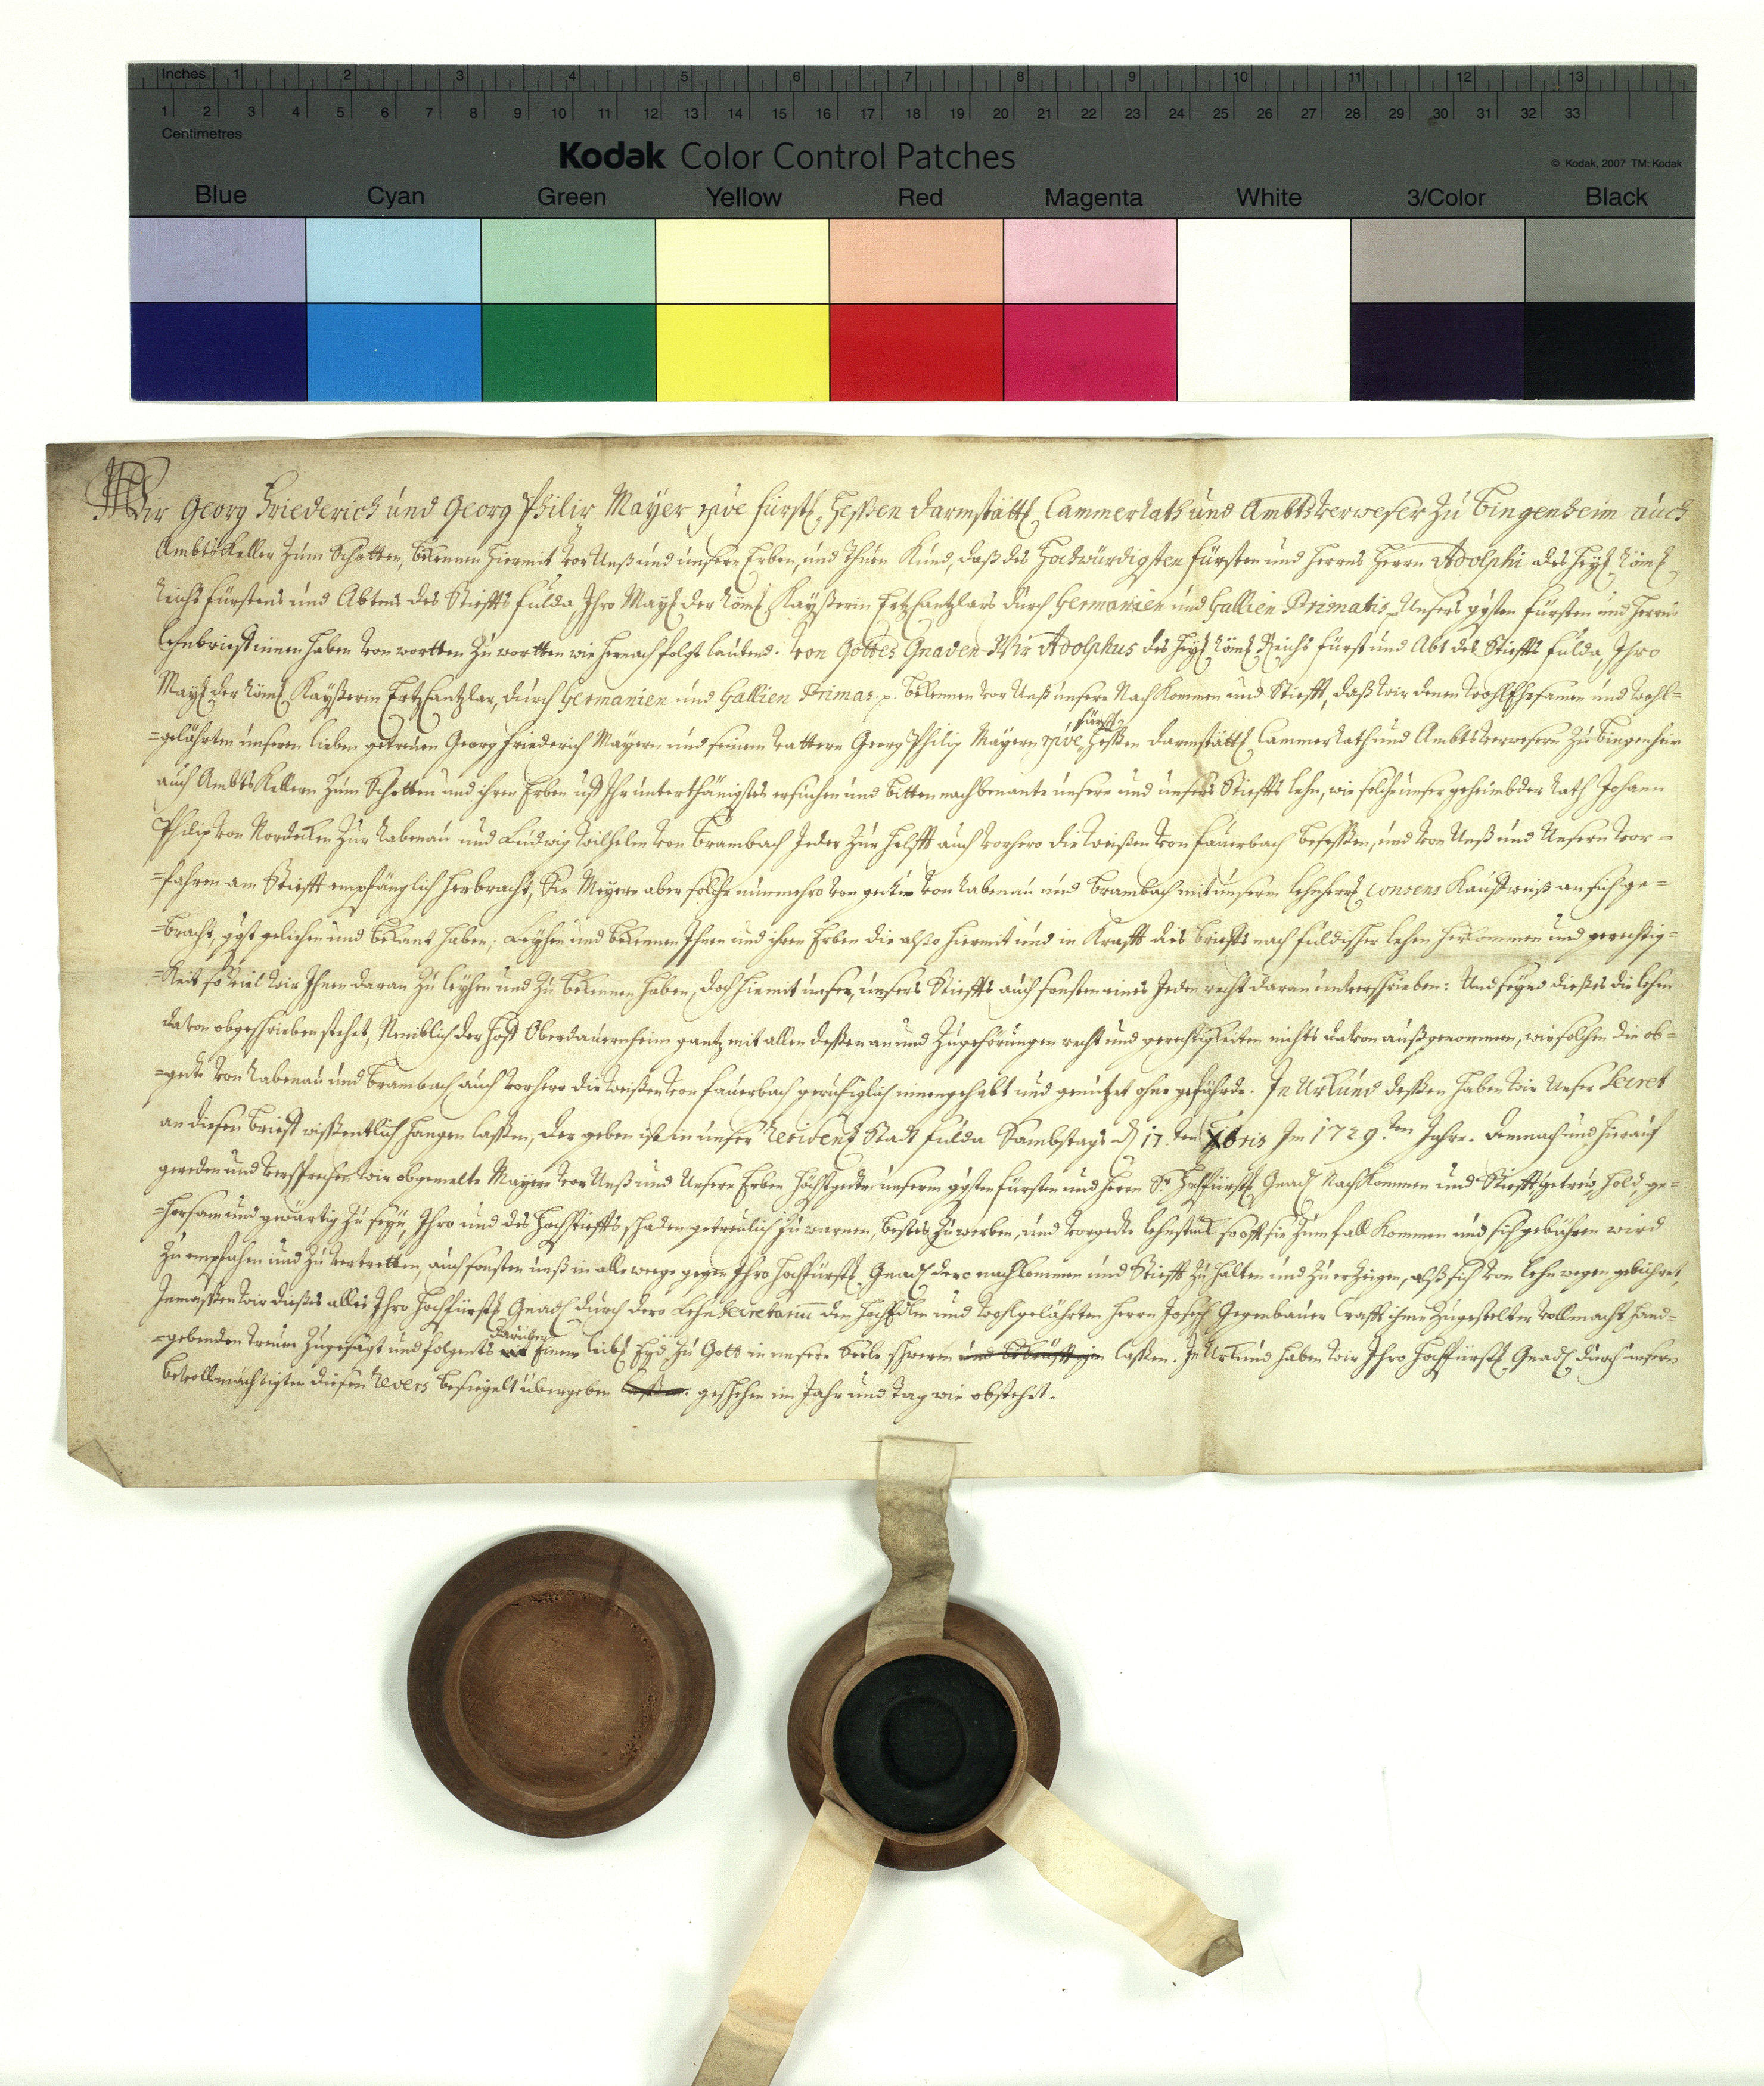 Inches 1 2 3 4 5 6 7 8 9 10 11 12 13
1 2 3 4 5 6 7 8 9 10 11 12 13 14 15 16 17 18 19 20 21 22 23 24 25 26 27 28 29 30 31 32 33
Centimetres
Kodak Color Control Patches
© Kodak, 2007 TM: Kodak
Blue Cyan Green Yellow Red Magenta White 3/Color Black
Wir Georg Friederich und Georg Philip Mayer rsive fürstl. Hessen Darmstättl. CammerRath und Ambtsverweser zu Bingenheim auch
AmbtsKeller zum Schotten, bekennen hiermit vor Unß und unsere Erben, und thuen Kund, daß des Hochwürdigsten Fürsten und Herrns Herrn Adolphi des Heyl. Röml.
Reichs Fürstens und Abtens des Stieffts Fulda, Ihro Mayt. der Röml. Kayßerin Ertz Cantzlars durch Germanien und Gallien Primatis, Unsers ggsten Fürsten und Herrn
Lehnbrieff innen haben von wortten zu wortten wie hernach folgt lautend: Von Gottes Gnaden Wir Adolphus des Heyl. Röml. Reichs Fürst und Abt des Stieffts Fulda, Ihro
Mayt. der Röml. Kayßerin Ertz Cantzlar, durch Germanien und Gallien Primas p. bekennen vor Unß unsere Nachkommen und Stiefft, daß wir denen WohlEhrsamen und wohl=
=gelährten unseren lieben getreuen Georg Friederich Mayern und seinem vattern Georg Philip Mayern rsive fürstl. Hessen Darmstättl. CammerRath und Ambtsverwesern zu Bingenheim
auch AmbtsKellern zum Schotten und ihren Erben uff Ihr unterthänigstes ersuchen und bitten nachbenante unsere und unsers Stieffts lehn, wie solche unser geheimbder Rath Johann
Philip von Nordecken zur Rabenau und Ludwig Wilhelm von Brambach Jeder zur helfft auch vorhero die Weißen von Fauerbach besessen, und von Unß und Unsern Vor=
=fahren am Stiefft empfänglich herbracht, Sie Meyere aber solche nunmehro von gedten von Rabenau und Brambach mit unserm lehnherrl. Consens Kauffweiß an sich ge=
=bracht, ggst gelichen und bekant haben, Leyhen und bekennen Ihnen und ihren Erben die also hiermit und in Krafft dies brieffs nach Fuldischer lehen herkommen und gerechtig=
=keit so viel wir Ihnen daran zu leyhen und zu bekennen haben, doch hiemit unser, unsers Stieffts auch sonsten eines Jeden recht daran unverschrieben: Und seynd dießes die lehen
davon obgeschrieben stehet, Nemblich der Hoff Oberdauernheim gantz mit allen deßen an und Zugehörungen recht und gerechtigkeiten nichts davon außgenommen, wie solchen die ob=
=gedte von Rabenau und Brambach auch vorhero die Weißen von Fauerbach geruhiglich innengehabt und genutzet ohne gefährde. In Urkund deßen haben wir Unser Secret
an diesen Brieff wissentlich hangen lassen, der geben ist in unser Residentz Stadt Fulda Sambstags d. 17.ten Xbris Im 1729.ten Jahre. Demnach und hierauf
gereden und versprechen wir obgemelte Mayere vor Unß und Unsere Erben Höchstgedten unserm ggsten Fürsten und Herrn Sr. Hochfürstl. Gnad. Nachkommen und Stiefft, getreu, hold, ge=
=horsam und gewärtig zu seyn, Ihro und des Hochstieffts schaden getreulich zu warnen, bestes zu werben, und vorgedte lehnstück so offt sie zum fall kommen und sich gebühren wird
zu empfahen und zu vertretten, auch sonsten unß in alle weege gegen Ihro Hochfürstl. Gnad. dero nachkommen und Stiefft zu halten und zu erzeigen, alß sich von lehn wegen gebühret,
Inmaßen wir dießes alles Ihro Hochfürstl. Gnad. durch dero Lehn Secretarium den HochEdlen und wohlgelährten Herrn Joseph Gegenbauer Crafft ihme zugestelter vollmacht hand=
=gebenden treuen zugesagt und folgents darüber einen leibl. Eyd zu Gott in unsere Seele schweren und bekräfftigen lassen. In Urkund haben wir Ihro Hochfürstl. Gnad. durch unsern
bevollmächtigten diesen Revers besiegelt übergeben laßen. geschehen im Jahr und Tag wie obstehet.